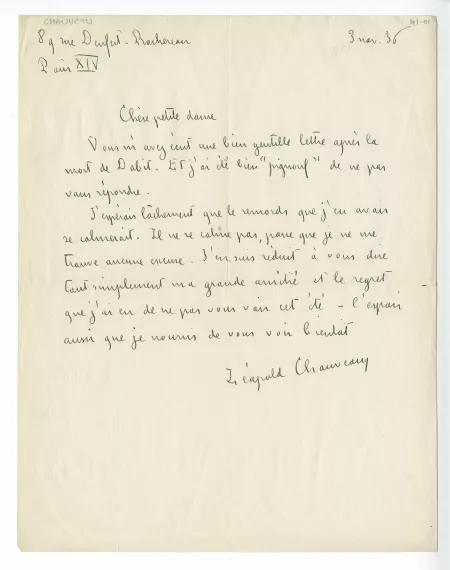 CHAUVEAU
89 rue Denfert-Rochereau
3 nov. 36
Paris XIV
Chère petite dame
Vous m'avez écrit une bien gentille lettre après la
mort de Dabit. Et j'ai été bien "pignouf" de ne pas
vous répondre.
J'espérais lâchement que le remords que j'en avais
se calmerait. Il ne se calme pas, parce que je ne me
trouve aucune excuse. J'en suis réduit à vous dire
tout simplement ma grande amitié et le regret
que j'ai eu de ne pas vous voir cet été – l'espoir
aussi que je nourris de vous voir bientôt
Léopold Chauveau